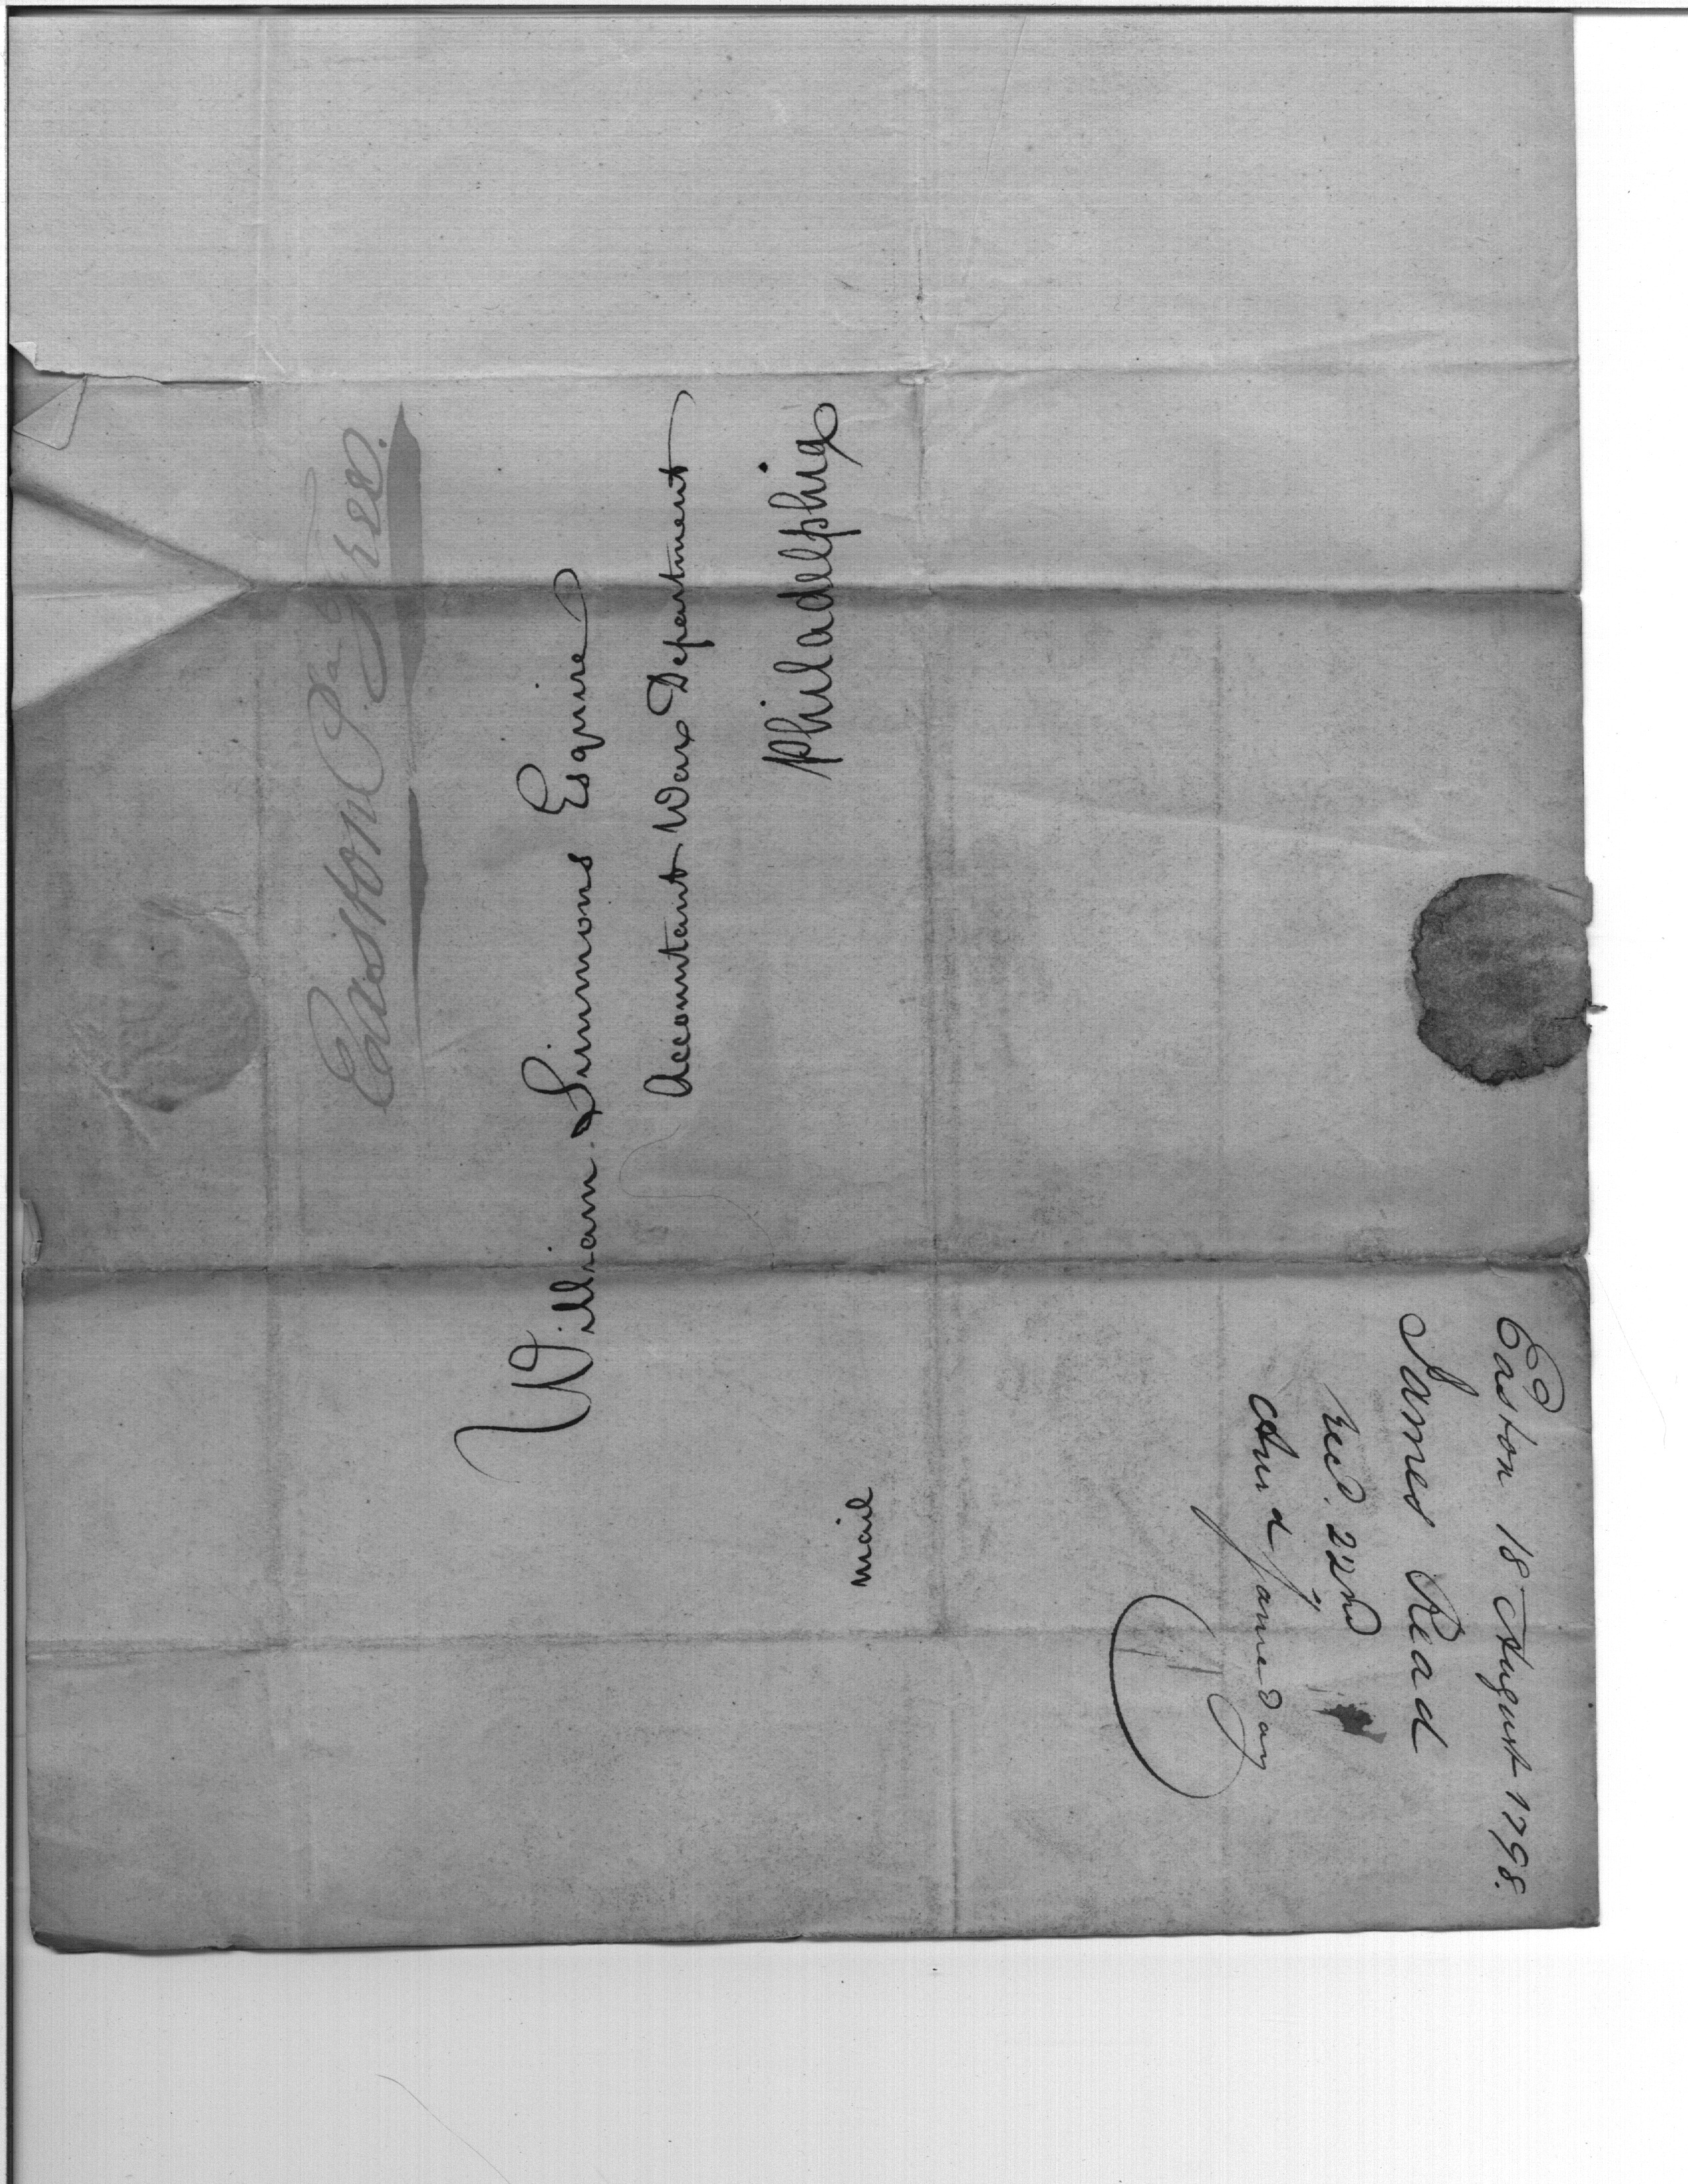 Easton Pa Free.
William Simmons Esquire
Accountant War Department
Philadelphia
mail
Easton 18 August 1798.
James Read
Recd. 22nd
Ansd same day